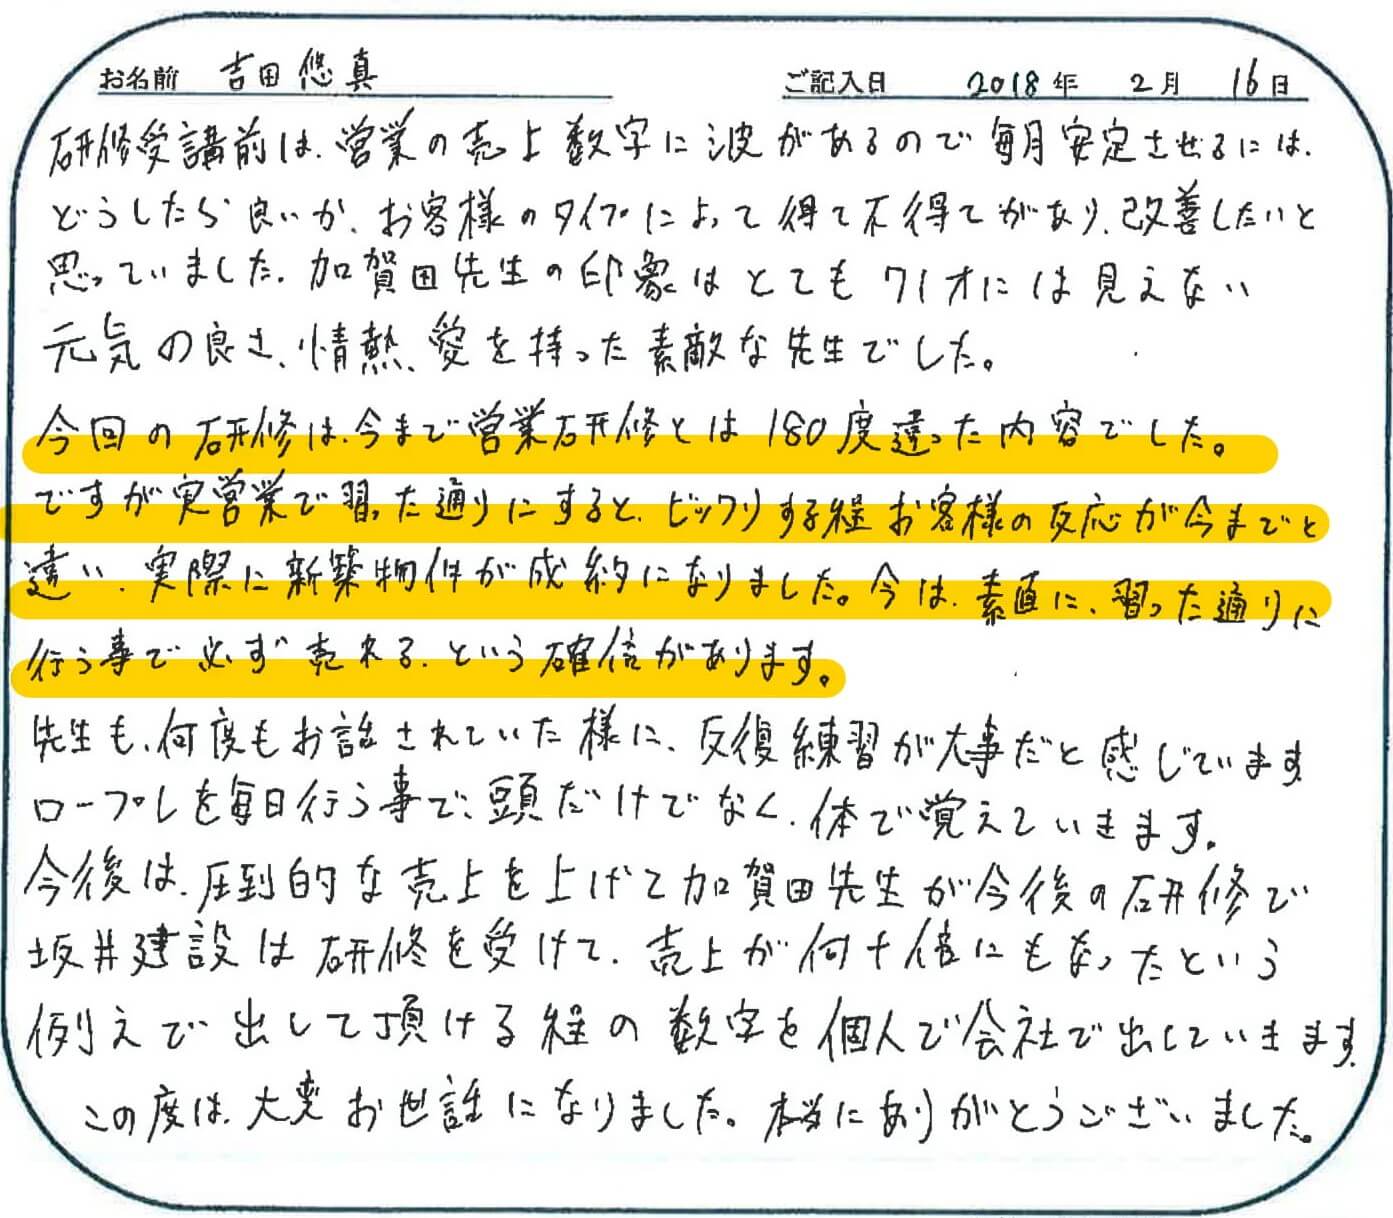 お名前 吉田悠真 ご記入日 2018年 2月 16日
研修受講前は、営業の売上数字に波があるので毎月安定させるには、
どうしたら良いか、お客様のタイプによって得て不得てがあり、改善したいと
思っていました。加賀田先生の印象はとても71才には見えない
元気の良さ、情熱、愛を持った素敵な先生でした。
今回の研修は、今まで営業研修とは180度違った内容でした。
ですが実営業で習った通りにすると、ビックリする程お客様の反応が今までと
違い、実際に新築物件が成約になりました。今は、素直に、習った通りに
行う事で必ず売れる、という確信があります。
先生も、何度もお話されていた様に、反復練習が大事だと感じています
ロープレを毎日行う事で、頭だけでなく、体で覚えていきます。
今後は、圧到的な売上を上げて加賀田先生が今後の研修で
坂井建設は研修を受けて、売上が何十倍にもなったという
例えで出して頂ける程の数字を個人で会社で出していきます。
この度は、大変お世話になりました。本当にありがとうございました。